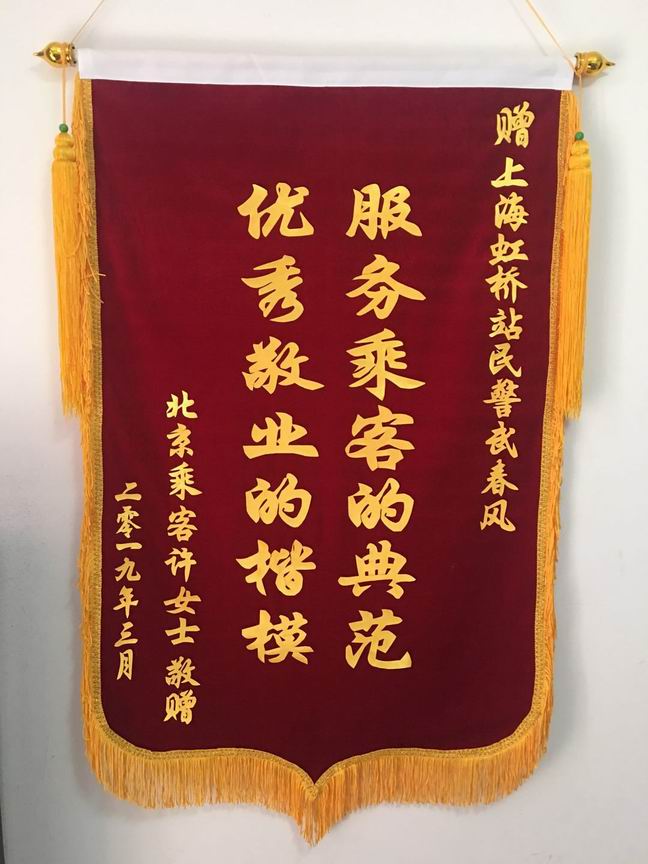 赠上海虹桥站民警武春风
服务乘客的典范
优秀敬业的楷模
北京乘客许女士 敬赠
二零一九年三月